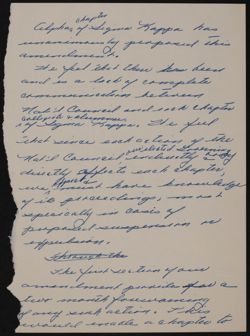 chapter
Alpha of Sigma Kappa has
unanimously proposed this
amendment.
We feel that there has been
and is a lack of complete
communication between
Nat'l Council and each chapter
collegiate & alumnae
of Sigma Kappa. We feel
that since each action of the
Nat'l Council
directly affects each chapter,
we must have knowledge
of its proceedings, most
especially in cases of
proposed suspension or
expulsion.
The first section of our
amendment provides for a
two month forewarning
of any such action. This
would enable a chapter to